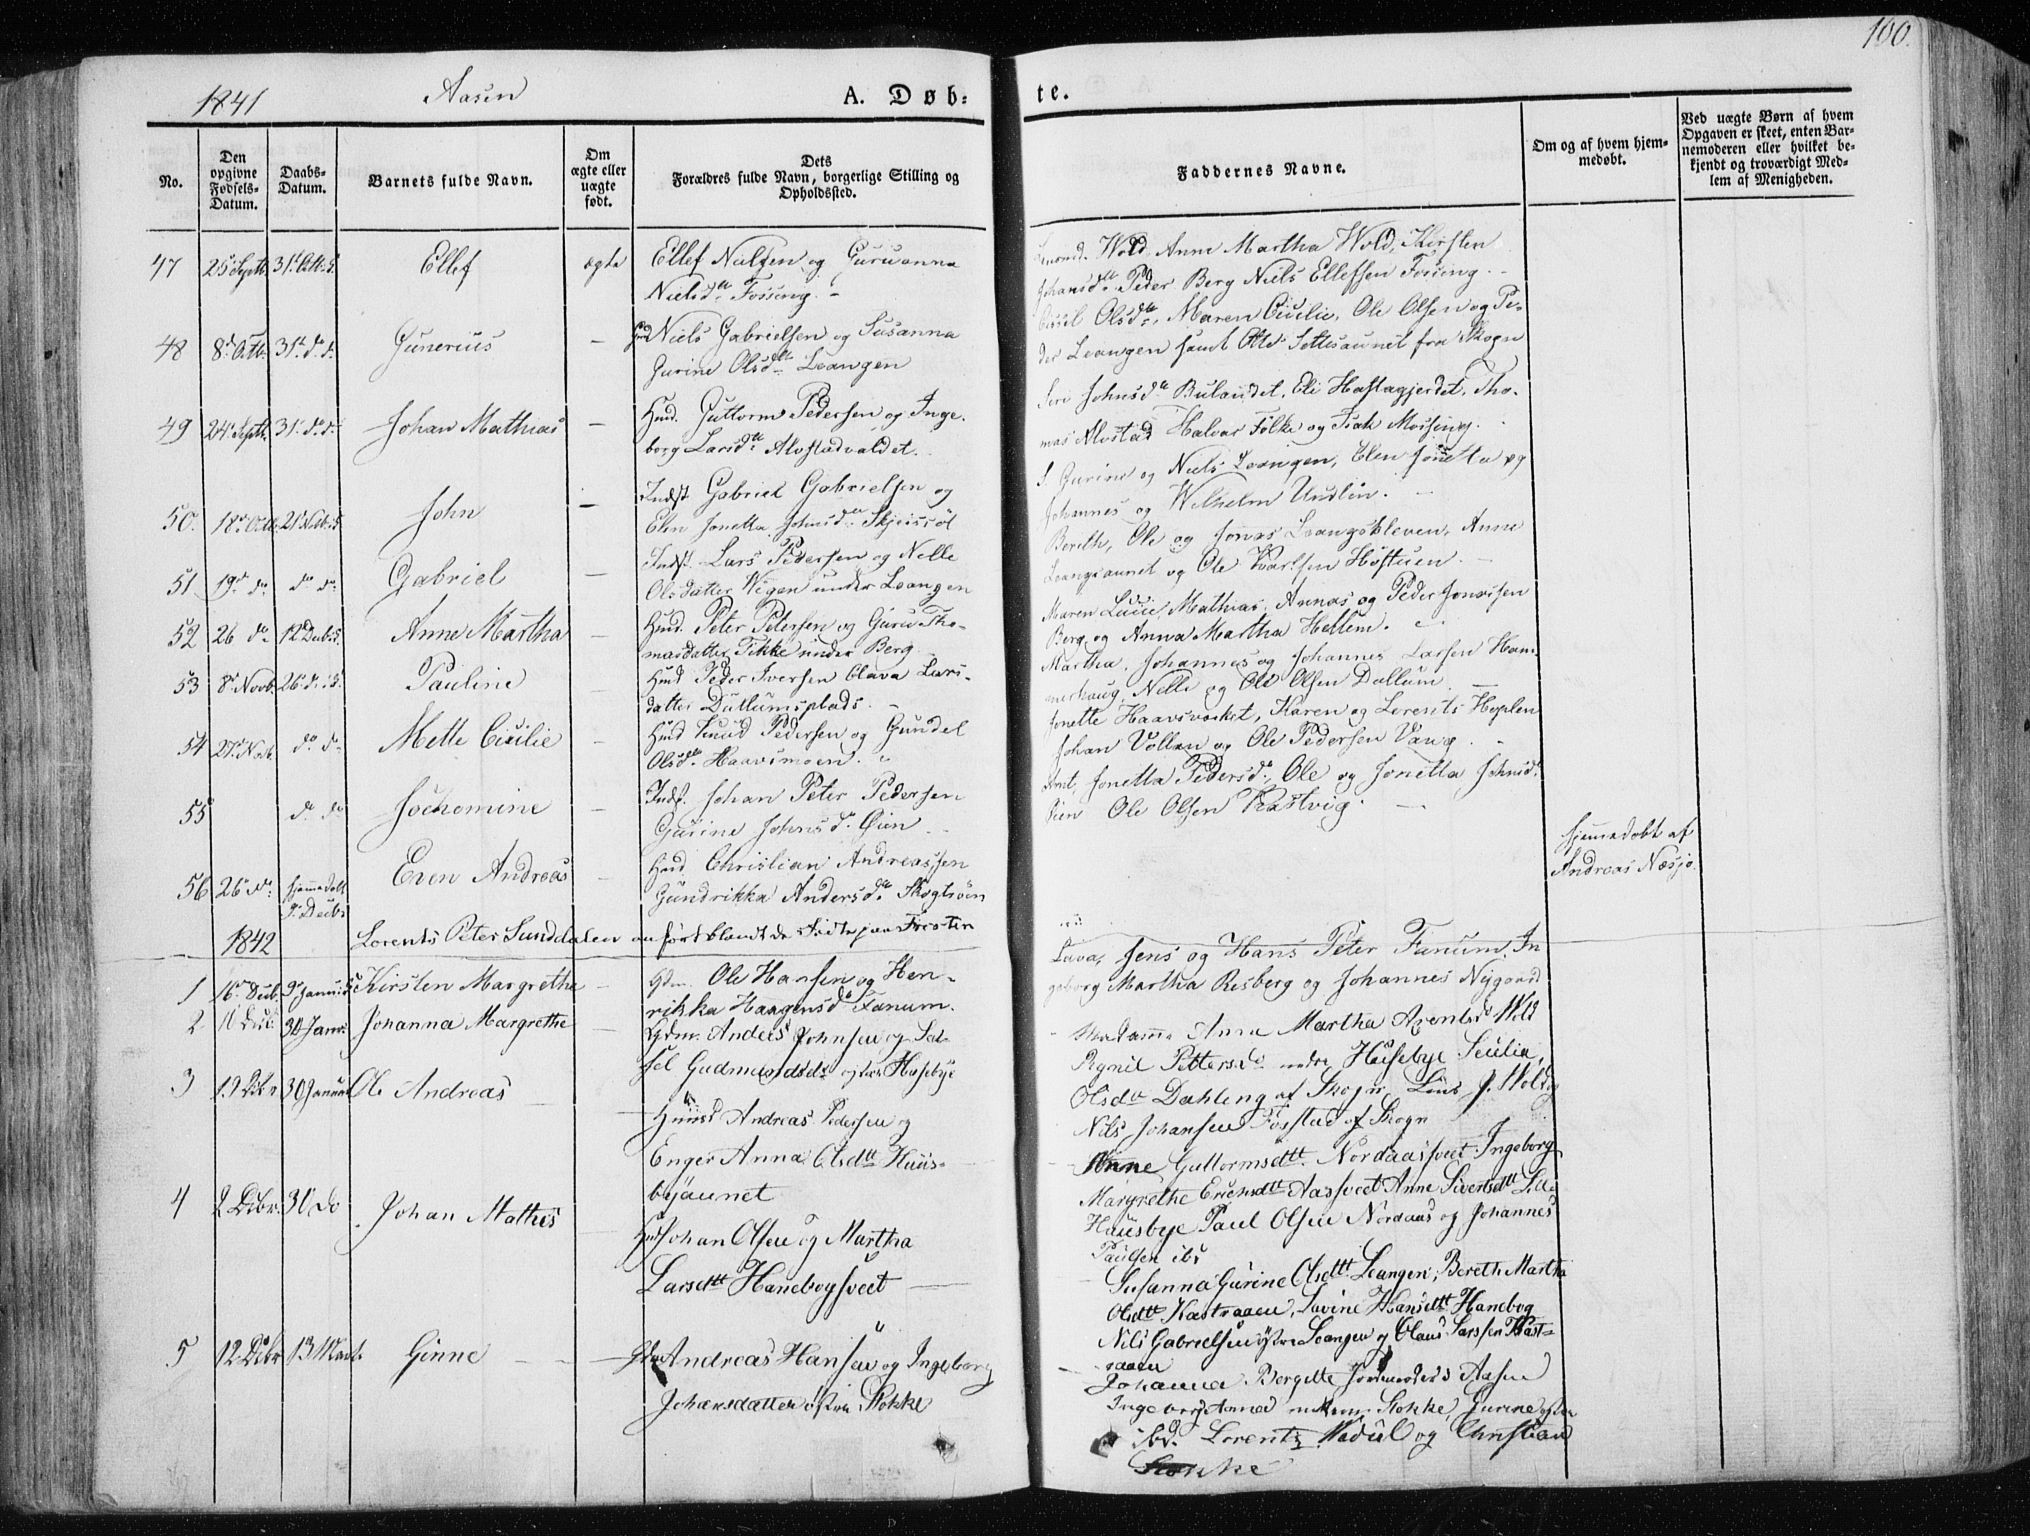 1841 Aasen A. Døb: te. 100.
No.
Den opgivne Fødsels-Datum.
Daabs-Datum.
Barnets fulde Navn.
Om ægte eller uægte født.
Dets Forældres fulde Navn, borgerlige Stilling og Opholdssted.
Faddernes Navne.
Om og af hvem hjem-
medøbt.
Ved uægte Børn af hvem
Opgaven er skeet, enten Bar-
nemoderen eller hvilket be-
kjendt og troværdigt Med-
lem af Menigheden.
47 25 Septb. 31 Octb. Ellef ægte Ellef Nielsen og Guruanna
Nielsdtr Fossing.
Wold, Anne Martha Wold, Kirsten
Johansdtr Peder Berg Niels Ellefsen Fossing.
48 8 Octb. 31 d. d. Gunerius — Niels Gabrielsen og Susanna
Gurine Olsdtr Leangen
Olsdtr, Maren Cicilie, Ole Olsen og Pe-
der Leangen samt Ole Settesaunet fra Skogn
49 24 Septb. 31 d. d. Johan Mathias — Huusd. Guttorm Pedersen og Inge-
borg Larsdtr Alvstadvaldet.
Johnsdtr Bulandet, Eli Hastagjerdet, Tho-
mas Alvstad Halvor Folke og Isak Mossing.
50. 18 Octb. 21 Novb. John — Indst Gabriel Gabrielsen og
Elen Jonetta Johnsdtr
S. Gurine og Niels Leangen, Elen Jonetta og
Johannes og Wilhelm Undlien.
51 19 do do do Gabriel — Indst. Lars Pedersen og Nelle
Olsdatter Wigen under Leangen
Bereth, Ole og Jonas Leangskleven, Anne
Leangsaunet og Ole Høstuen.
52 26 do 12 Decb. Anne Martha — Huusd. Peter Petersen og Guru Tho-
masdatter under Berg
Maren Lucie, Mathias, Annas og Peder Jonassen
Berg og Anna Martha Hellem.
53 8 Novb. 26 d. Pauline Huusd Peder Iversen Olava Lars-
datter Dullumsplads.
Martha, Johannes og Johannes Larsen Ham
merhaug, Nelle og Ole Olsen Dullum
54 27 Novb. do do Mette Cicilie — Huusd Knud Pedersen og Gundel
Olsdtr Haavsmoen.
Jonette Haavsvedet, Karen og Lorents Hoplen
Johan Vollan og Ole Pedersen Vang.
55 do do Jochomine — Indst. Johan Peter Pedersen
Gurine Johnsdtr Øien
Jonetta Pedersdtr, Ole og Jonetta Johnsdtr
Øien Ole Olsen Rastvig.
56 26 do. hjemmedøbt
Decbr Even Andreas — Huusd. Christian Andreassen
Gundrikka Andersdtr
hjemmedøbt af
Andreas Næsjø.
1842 Lorents Peter Sunddalen anført blandt de fødte paa Frosten
1 16 Decb. 9 Januar Kirsten Margrethe — Gdm. Ole Hansen og Hen-
rikka Haagensdtr Fanum.
Lava, Jens og Hans Peter Fanum, In
geborg Martha Resberg og Johannes Nygaard
2 10 Decb. 30 Janr Johanna Margrethe — Gdm. Anders Johnsen og Sis-
sel Gudmundsdtr østre Husebye
Madame Anne Martha Arentsdtr Wold
Pettersdtr nedre Husebye Secilia,
Olsdtr Dahling af Skogn, P. Wold og
Nils Johansen Fosstad af Skogn
3 19 Decbr 30 Januar Ole Andreas — Huusd Andreas Pedersen og
Enger Anna Olsdtt Huus-
byaunet
Anne Guttormsdtt. Nordaasveet Ingeborg
Margrethe Ericksdtt Aasveet Anne Sivertsdtt Lille
Huusbye Paul Olsen Nordaas og Johannes
Paulsen ibd
4 2 Dcbr. 30 do Johan Mathis Huusd Johan Olsen og Martha
Larsdtt Hanebogsveet
Susanna Gurine Olsdtt. Leangen, Bereth Martha
Olsdtt. Kastraaen, Lovine Hansdtt Hanebog
Nils Gabrielsen østre Leangen og Olaus Larssen Kast-
raaen
5 12 Dcbr 13 Marts Ginne — Gdm Andreas Hansen og Ingeborg
Johansdatter østre Stokke
Johanna Bergette Aasen
Ingeborg Anna Stokke, Gurine østre
ibd. Lorents og Christian
Stokke